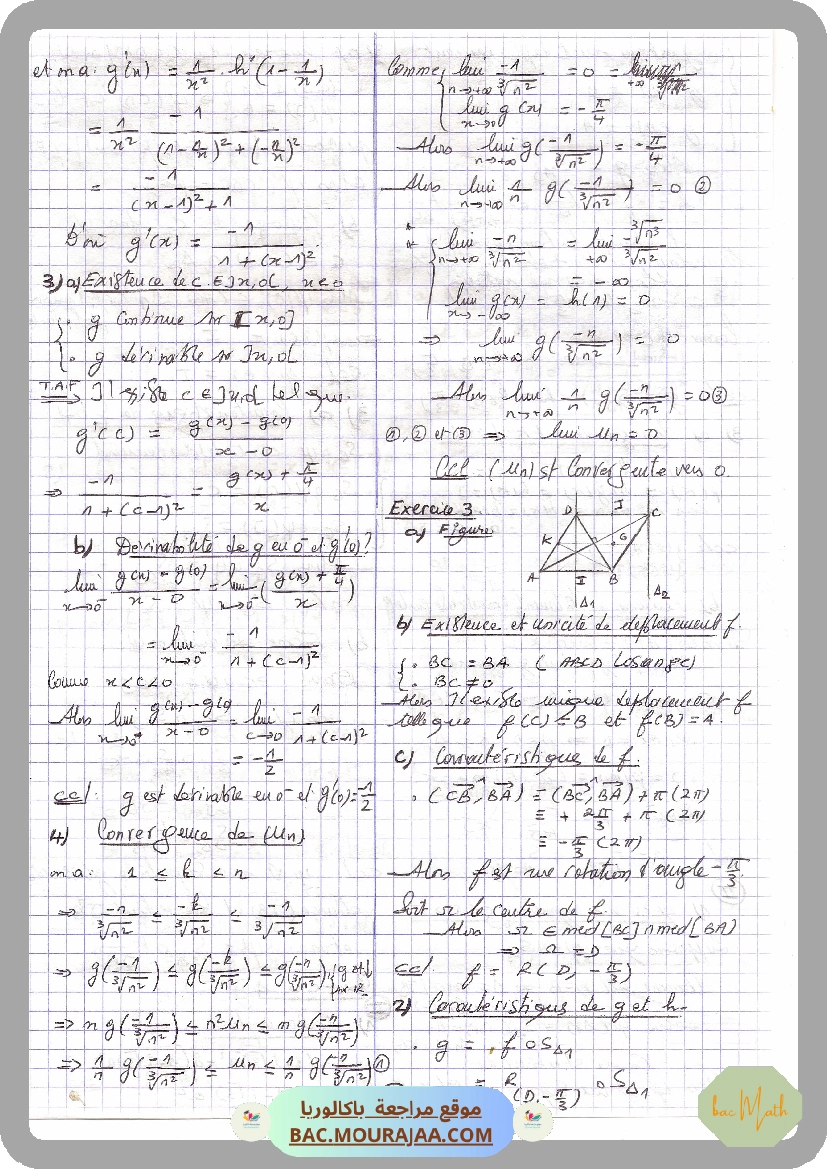 et on a : g'(x) = 1/x² . h'(1 - 1/x)
= 1/x² . -1/((1 - 1/x)² + (-1/x)²)
= -1/((x-1)² + 1)
D'où g'(x) = -1/(1 + (x-1)²)
3) a) Existence de c ∈ ]x,0[, x<0
. g continue sur [x,0]
. g dérivable sur ]x,0[
T.A.F ⟹ Il existe c ∈ ]x,0[ tel que.
g'(c) = (g(x) - g(0))/(x - 0)
⇒ -1/(1 + (c-1)²) = (g(x) + π/4)/x
b) Dérivabilité de g en 0⁻ et g'(0)?
lim x→0⁻ (g(x) - g(0))/(x - 0) = lim x→0⁻ ((g(x) + π/4)/x)
= lim x→0⁻ -1/(1 + (c-1)²)
Comme x < c < 0
Alors lim x→0⁻ (g(x) - g(0))/(x - 0) = lim c→0 -1/(1 + (c-1)²)
= -1/2
ccl: g est dérivable en 0⁻ et g'(0) = -1/2
4) Convergence de (Un)
on a : 1 ≤ k ≤ n
⇒ -n/∛n² ≤ -k/∛n² ≤ -1/∛n²
⇒ g(-1/∛n²) ≤ g(-k/∛n²) ≤ g(-n/∛n²),
⇒ n g(-1/∛n²) ≤ n² Un ≤ n g(-n/∛n²)
⇒ 1/n g(-1/∛n²) ≤ Un ≤ 1/n g(-n/∛n²) ①
Comme { lim n→+∞ -1/∛n² = 0
lim x→0 g(x) = -π/4
Alors lim n→+∞ g(-1/∛n²) = -π/4
Alors lim n→+∞ 1/n g(-1/∛n²) = 0 ②
* { lim n→+∞ -n/∛n² = lim +∞ -∛n³/∛n²
= -∞
lim x→-∞ g(x) = h(1) = 0
⇒ lim n→+∞ g(-n/∛n²) = 0
Alors lim n→+∞ 1/n g(-n/∛n²) = 0 ③
①, ② et ③ ⇒ lim Un = 0
Ccl (Un) est Convergente vers 0
Exercice 3
a) Figure
D J C
K G
A I B
Δ1 Δ2
b) Existence et unicité de déplacement f.
. BC = BA ( ABCD losange)
. BC ≠ 0
Alors Il existe unique déplacement f
telle que f(C) = B et f(B) = A.
c) Caractéristique de f.
. (CB, BA) ≡ (BC, BA) + π (2π)
≡ + 2π/3 + π (2π)
≡ -π/3 (2π)
Alors f est une rotation d'angle -π/3.
Soit Ω le centre de f.
Alors Ω ∈ med[BC] ∩ med[BA)
⇒ Ω = D
ccl. f = R(D, -π/3)
2) Caractéristique de g et h.
. g = f o SΔ1
= R(D, -π/3) o SΔ1
موقع مراجعة باكالوريا
BAC.MOURAJAA.COM
bac Math